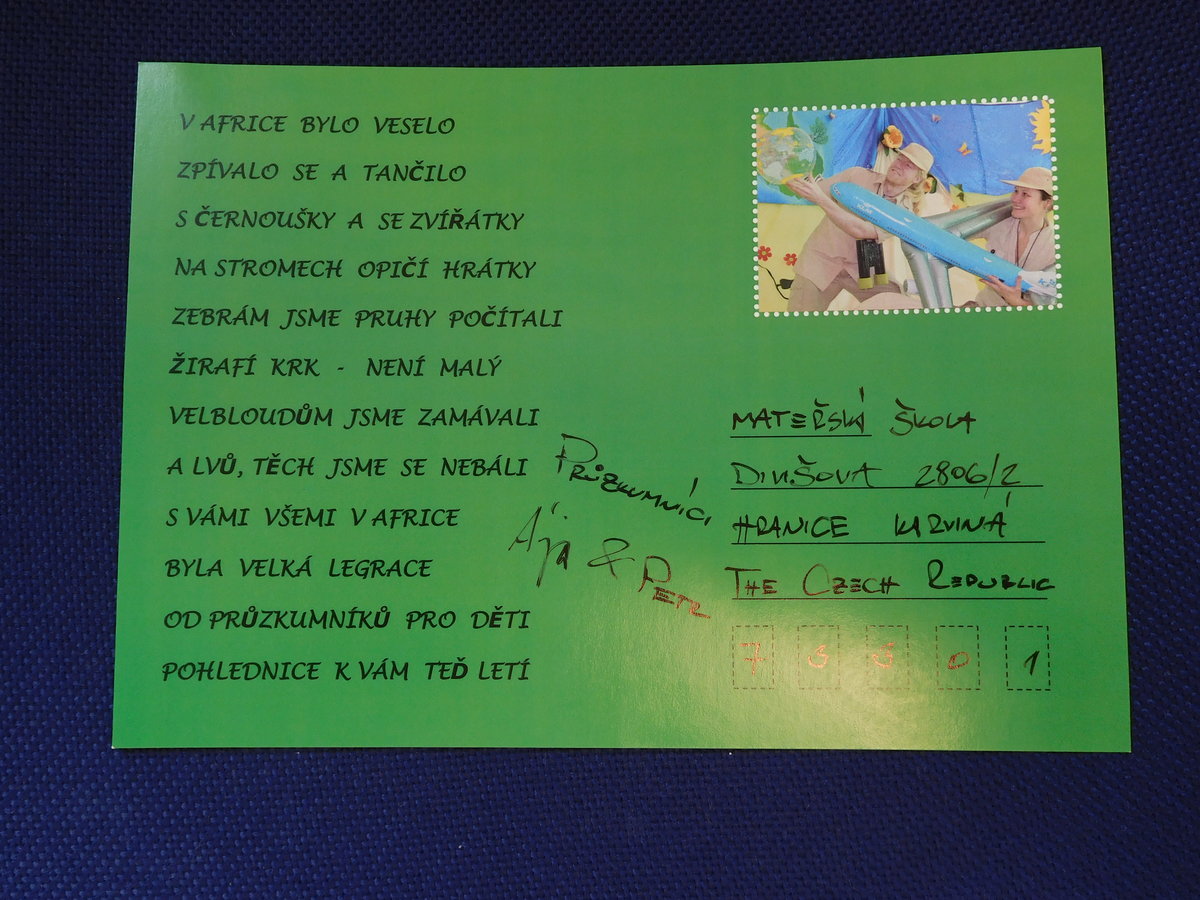 V AFRICE BYLO VESELO
ZPÍVALO SE A TANČILO
S ČERNOUŠKY A SE ZVÍŘÁTKY
NA STROMECH OPIČÍ HRÁTKY
ZEBRÁM JSME PRUHY POČÍTALI
ŽIRAFÍ KRK - NENÍ MALÝ
VELBLOUDŮM JSME ZAMÁVALI
A LVŮ, TĚCH JSME SE NEBÁLI
S VÁMI VŠEMI V AFRICE
BYLA VELKÁ LEGRACE
OD PRŮZKUMNÍKŮ PRO DĚTI
POHLEDNICE K VÁM TEĎ LETÍ
PRŮZKUMNÍCI
ÁJA & PETR
KLM
MATEŘSKÁ ŠKOLA
DIVIŠOVA 2806/2
HRANICE KARVINÁ
THE CZECH REPUBLIC
7 3 3 0 1